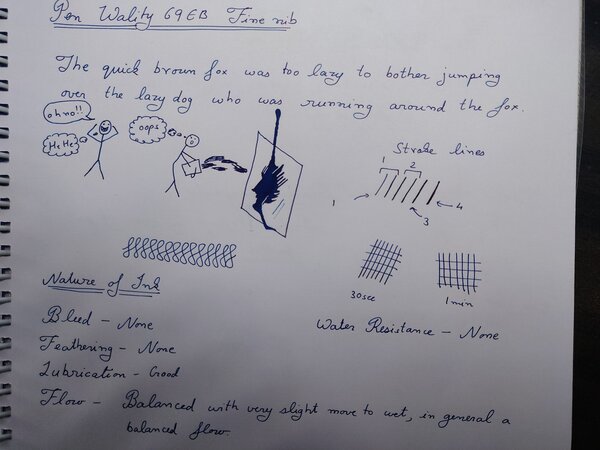 Pen Wality 69EB Fine nib
The quick brown fox was too lazy to bother jumping
over the lazy dog who was running around the fox.
oh no!!
HeHe
oops
Stroke lines
1 2
1
4
3
30sec
1 min
Nature of Ink
Bleed - None
Feathering - None
Lubrication - Good
Water Resistance - None
Flow - Balanced with very slight move to wet, in general a
balanced flow.